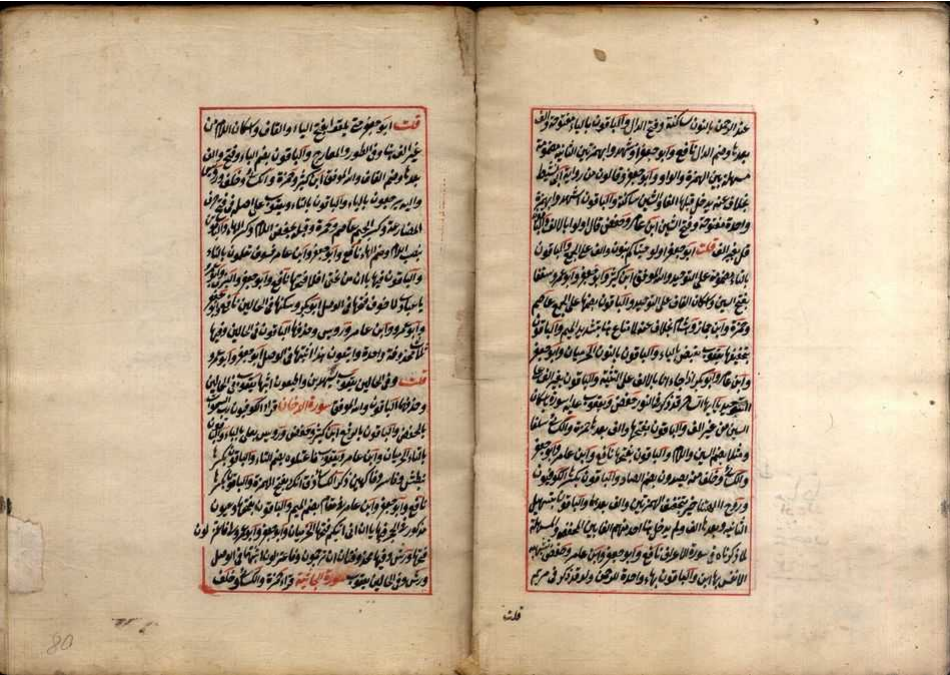 عند الرحمن بالنون ساكنة وفتح الدال والباقون بالباء مفتوحة والف
بعدها وضم الدال نافع وابو جعفر اوشهدوا بهمزتين الثانية مضمومة
مسهلة بين الهمزة والواو وابو جعفر وقالون من رواية ابى نشيط
بخلاف عنه يدخل قبلها الفا والشين ساكنة والباقون اشهدوا بهمزة
واحدة مفتوحة وفتح الشين ابن عامر وحفص قال اولو بالالف والباقون
قل بغير الف قلت ابو جعفر اولو جئناكم بنون والف على الجمع والباقون
بالتاء مضمومة على التوحيد والله الموفق ابن كثير وابو جعفر وابو عمرو سقفا
بفتح السين واسكان القاف على التوحيد والباقون بضمها على الجمع عاصم
وحمزة وابن جماز وهشام بخلاف عنه لما متاع هنا بتشديد الميم والباقون
بتخفيفها يعقوب يقيض بالياء والباقون بالنون الحرميان وابو جعفر
وابن عامر وابو بكر اذا جاءانا بالالف على التثنية والباقون بغير الف على
التوحيد يا ايه الساحر قد ذكر فى النور حفص ويعقوب عليه اسورة باسكان
السين من غير الف والباقون بفتحها والف بعدها حمزة والكسائى سلفا
ومثلا بضم السين واللام والباقون بفتحها نافع وابن عامر وابو جعفر
والكسائى وخلف عنه يصدون بضم الصاد والباقون بكسرها الكوفيون
وروح االهتنا خير بتحقيق الهمزتين والف بعدها والباقون بتسهيل
الثانية وبعدها الف ولم يدخل هنا احد منهم الفا بين المحققة والمسهلة
لما ذكرناه فى سورة الاعراف نافع وابو جعفر وابن عامر وحفص تشتهيه
الانفس بهاءين والباقون بهاء واحدة للرحمن ولد قد ذكر فى مريم
قلت
قلت ابو جعفر حتى يلقوا بفتح الياء والقاف واسكان اللام من
غير الف هنا وفى الطور والمعارج والباقون بضم الياء وفتح والف
بعدها وضم القاف والله الموفق ابن كثير وحمزة والكسائى وخلف ورويس
واليه يرجعون بالياء والباقون بالتاء ويعقوب على اصله فى فتح حرف
المضارعة وكسر الجيم عاصم وحمزة وقيله بخفض اللام وكسر الهاء والباقون
بنصب اللام وضم الهاء نافع وابو جعفر وابن عامر فسوف تعلمون بالتاء
والباقون فيها ياان من تحتى افلا فتحها نافع وابو جعفر والبزى وابو عمرو
يا عباد لا خوف فتحها فى الوصل ابو بكر وسكنها فى الحالين نافع وابو جعفر
وابو عمرو وابن عامر ورويس وحذفها الباقون فى الحالين وفيها
محذوفة واحدة واتبعون هذا اثبتها فى الوصل ابو جعفر وابو عمرو
قلت وفى الحالين يعقوب سيهدين واطيعون اثبتها يعقوب فى الحالين
وحذفها الباقون والله الموفق سورة الدخان قرا الكوفيون رب السموات
بالخفض والباقون بالرفع ابن كثير وحفص ورويس يغلى بالياء والباقون
بالتاء الحرميان وابن عامر ويعقوب فاعتلوه بضم التاء والباقون بكسرها
نبطش وفاسر وفاكهين ذكر الكسائى ذق انك بفتح الهمزة والباقون بكسرها
نافع وابو جعفر وابن عامر فى مقام بضم الميم والباقون بفتحها
مذكور غير مرة فيها ياان انى اتيكم فتحها الحرميان وابو جعفر وابو عمرو لى فاعتزلون
فتحها ورش وفيها محذوفتان ان ترجمون وفاعتزلون اثبتهما فى الوصل
ورش وفى الحالين يعقوب سورة الجاثية قرا حمزة والكسائى وخلف
80